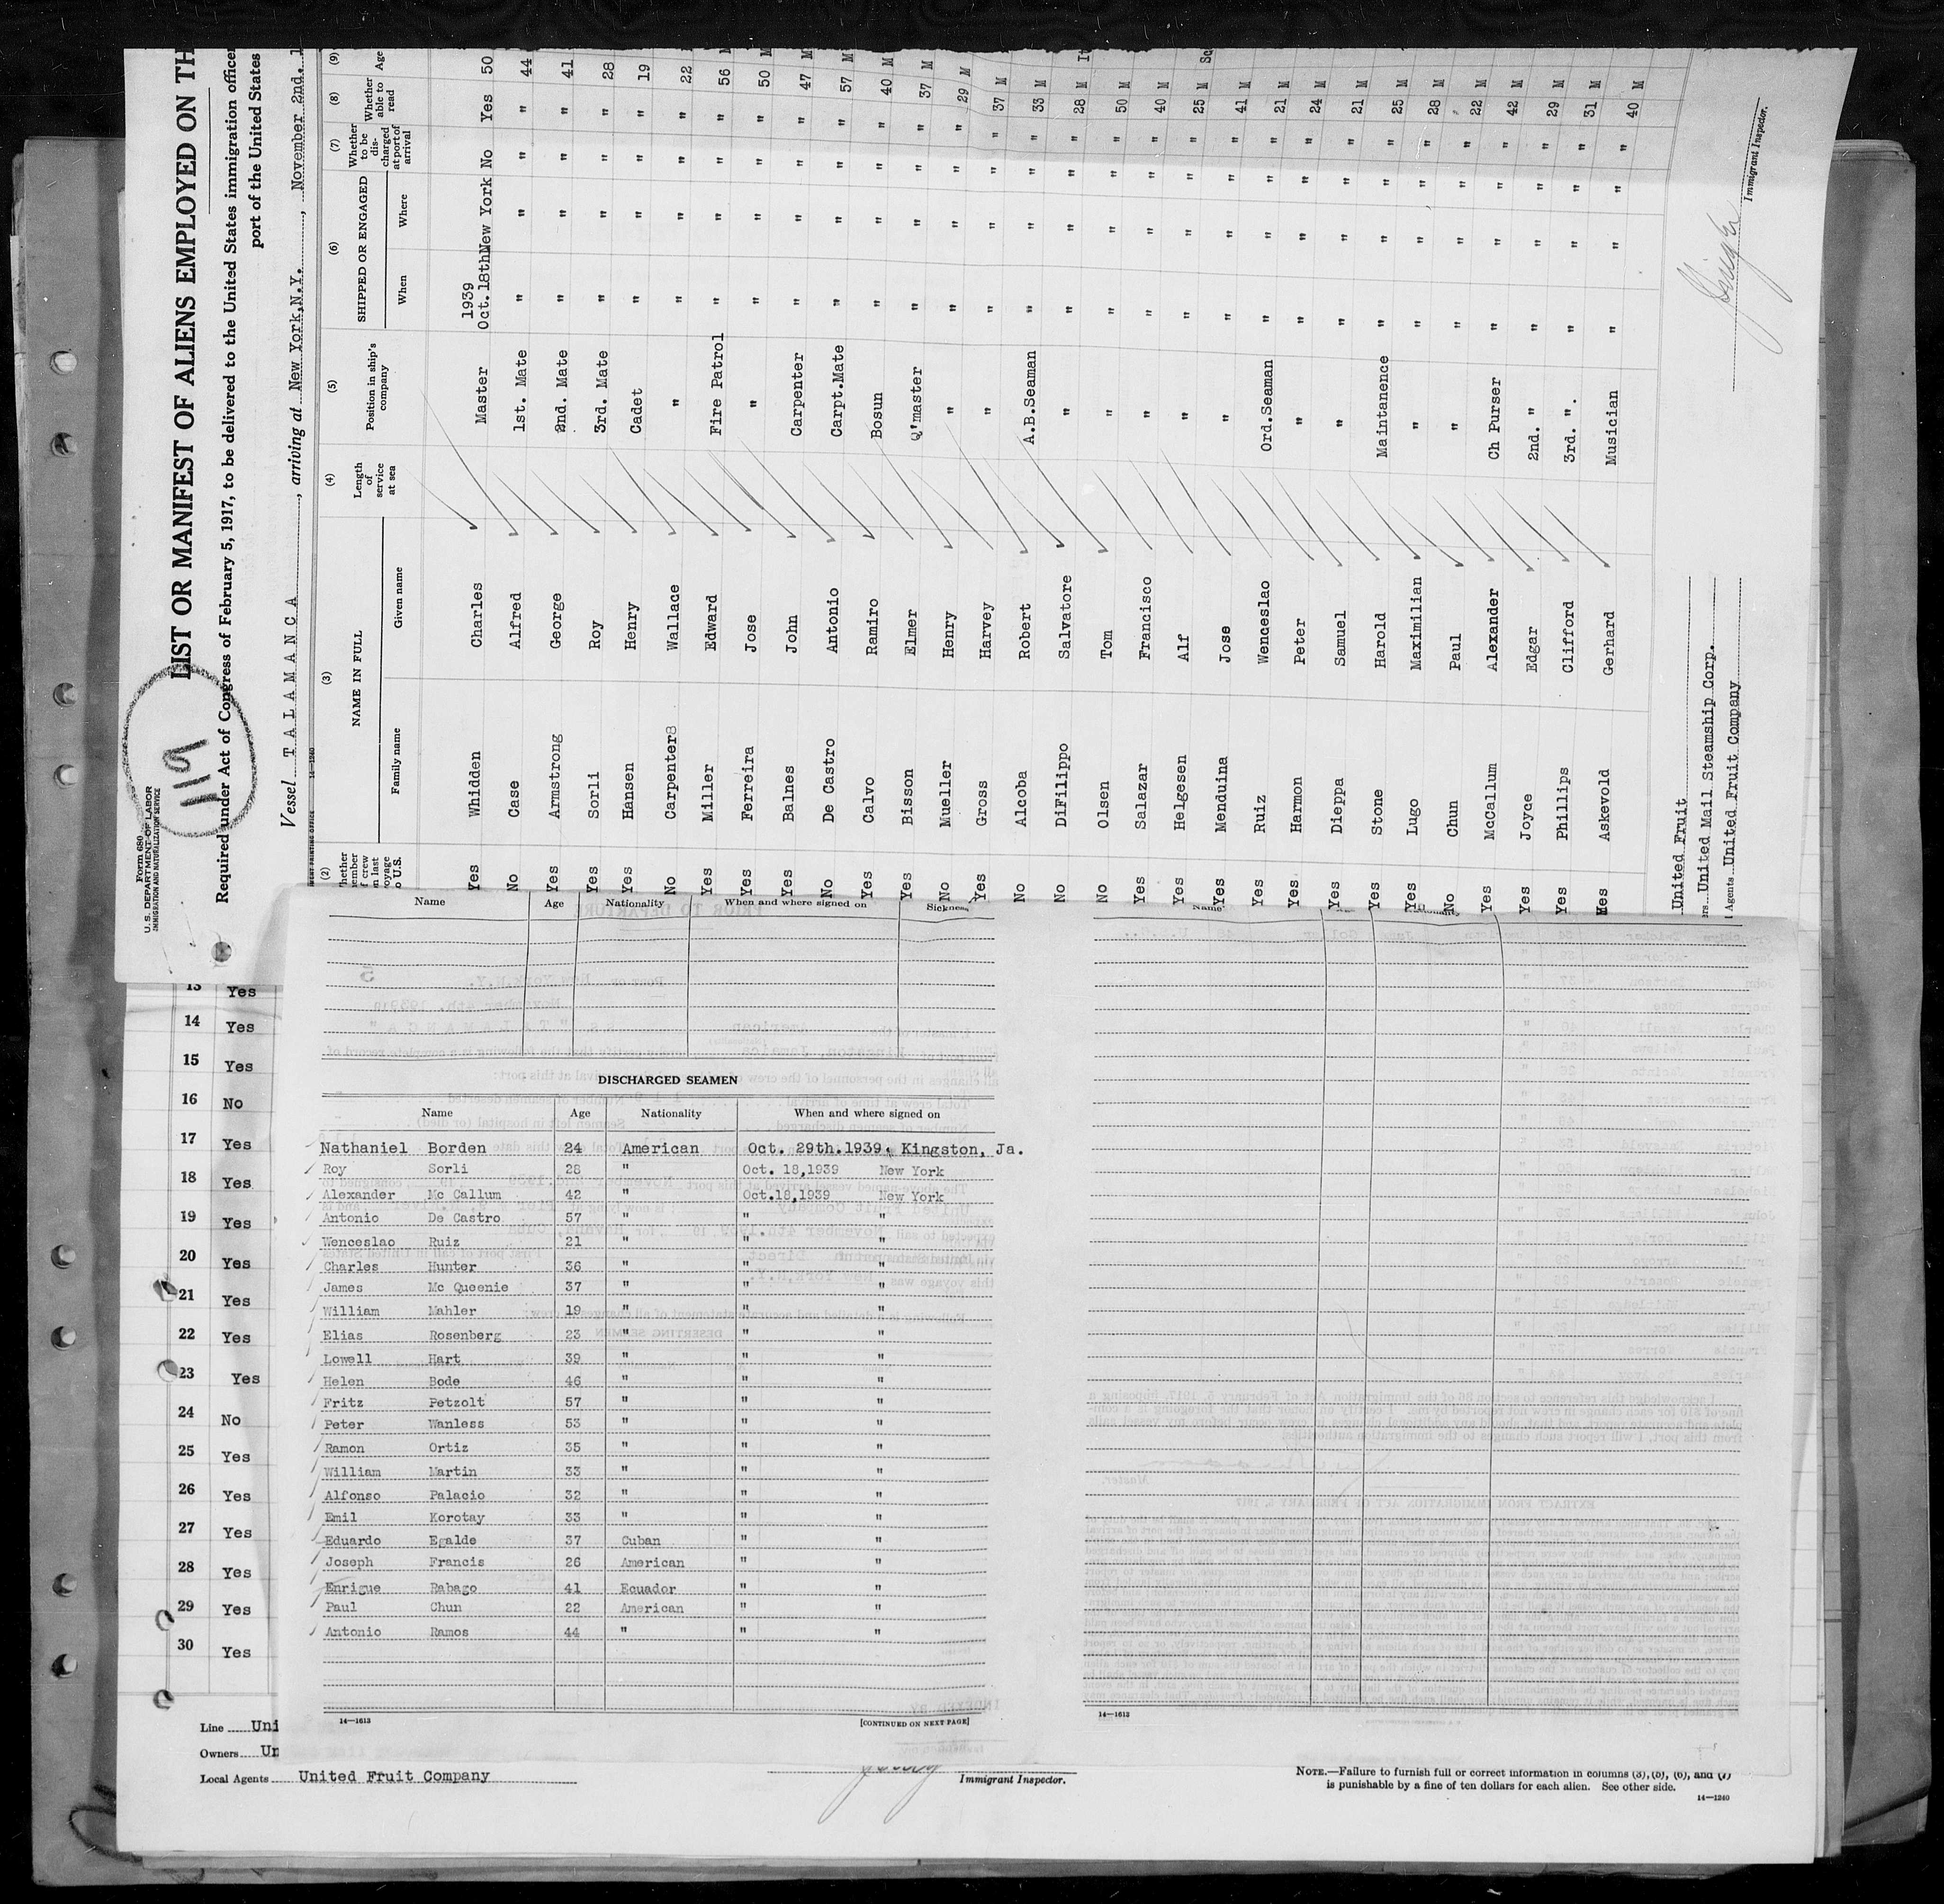 Form 680
U.S. DEPARTMENT OF LABOR
IMMIGRATION AND NATURALIZATION SERVICE
LIST OR MANIFEST OF ALIENS EMPLOYED ON TH
Required under Act of Congress of February 5, 1917, to be delivered to the United States immigration officer
port of the United States
Vessel TALAMANCA, arriving at New York,N.Y., November 2nd. 1
14—1240
(2) (3) (4) (5) (6) (7) (8) (9)
NAME IN FULL Length of service at sea Position in ship's company SHIPPED OR ENGAGED Whether to be discharged at port of arrival Whether able to read Age
Family name Given name When Where
1939
Yes Whidden Charles Master Oct.18th New York No Yes 50
No Case Alfred 1st. Mate " " " " 44
Yes Armstrong George 2nd. Mate " " " " 41
Yes Sorli Roy 3rd. Mate " " " " 28
Yes Hansen Henry Cadet " " " " 19
No Carpenter Wallace " " " " " 22
Yes Miller Edward Fire Patrol " " " " 56
Yes Ferreira Jose " " " " " 50 M
Yes Balnes John Carpenter " " " " 47 M
No De Castro Antonio Carpt.Mate " " " " 57 M
Yes Calvo Ramiro Bosun " " " " 40 M
Yes Bisson Elmer Q'master " " " " 37 M
No Mueller Henry " " " " " 29 M
Yes Gross Harvey " " " " " 37 M
No Alcoba Robert A.B.Seaman " " " " 33 M
No DiFilippo Salvatore " " " " " 28 M It
No Olsen Tom " " " " " 50 M
Yes Salazar Francisco " " " " " 40 M
Yes Helgesen Alf " " " " " 25 M Sc
Yes Menduina Jose " " " " " 41 M
Yes Ruiz Wenceslao Ord.Seaman " " " " 21 M
Yes Harmon Peter " " " " " 24 M
Yes Dieppa Samuel " " " " " 21 M
Yes Stone Harold Maintanence " " " " 25 M
Yes Lugo Maximilian " " " " " 28 M
No Chun Paul " " " " " 22 M
Yes McCallum Alexander Ch Purser " " " " 42 M
Yes Joyce Edgar 2nd. " " " " " 29 M
Yes Phillips Clifford 3rd. ". " " " " 31 M
Yes Askevold Gerhard Musician " " " " 40 M
United Fruit
United Mail Steamship Corp.
Agents United Fruit Company
Immigrant Inspector.
Name Age Nationality When and where signed on Sickness
DISCHARGED SEAMEN
Name Age Nationality When and where signed on
Nathaniel Borden 24 American Oct. 29th.1939, Kingston, Ja.
Roy Sorli 28 " Oct. 18,1939 New York
Alexander Mc Callum 42 " Oct.18,1939 New York
Antonio De Castro 57 " " "
Wenceslao Ruiz 21 " " "
Charles Hunter 36 " " "
James Mc Queenie 37 " " "
William Mahler 19 " " "
Elias Rosenberg 23 " " "
Lowell Hart 39 " " "
Helen Bode 46 " " "
Fritz Petzolt 57 " " "
Peter Wanless 53 " " "
Ramon Ortiz 35 " " "
William Martin 33 " " "
Alfonso Palacio 32 " " "
Emil Korotay 33 " " "
Eduardo Egalde 37 Cuban " "
Joseph Francis 26 American " "
Enrigue Rabago 41 Ecuador " "
Paul Chun 22 American " "
Antonio Ramos 44 " " "
14—1613
[CONTINUED ON NEXT PAGE]
14—1613
13 Yes
14 Yes
15 Yes
16 No
17 Yes
18 Yes
19 Yes
20 Yes
21 Yes
22 Yes
23 Yes
24 No
25 Yes
26 Yes
27 Yes
28 Yes
29 Yes
30 Yes
Line Uni
Owners Un
Local Agents United Fruit Company
Immigrant Inspector.
NOTE.—Failure to furnish full or correct information in columns (3), (5), (6), and (7)
is punishable by a fine of ten dollars for each alien. See other side.
14—1240